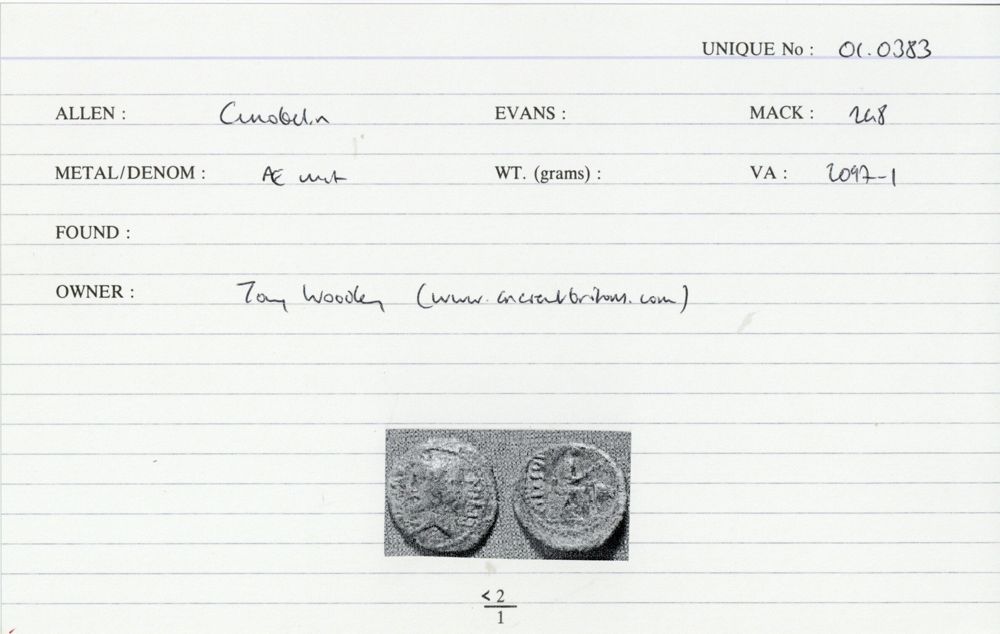 UNIQUE No : 01.0383
ALLEN : Cunobelin EVANS : MACK : 248
METAL/DENOM : Æ unit WT. (grams) : VA : 2097-1
FOUND :
OWNER : Tony (www.ancientbritons.com)
< 2
1